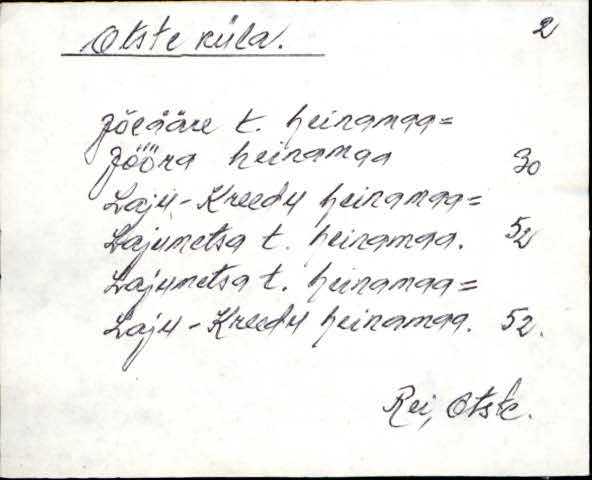 Otste küla. 2
Jõeääre t. heinamaa=
Jõõra heinamaa 30
Laju-Kreedu heinamaa=
Lajumetsa t. heinamaa. 52
Lajumetsa t. heinamaa=
Laju-Kreedu heinamaa. 52.
Rei, Otste.